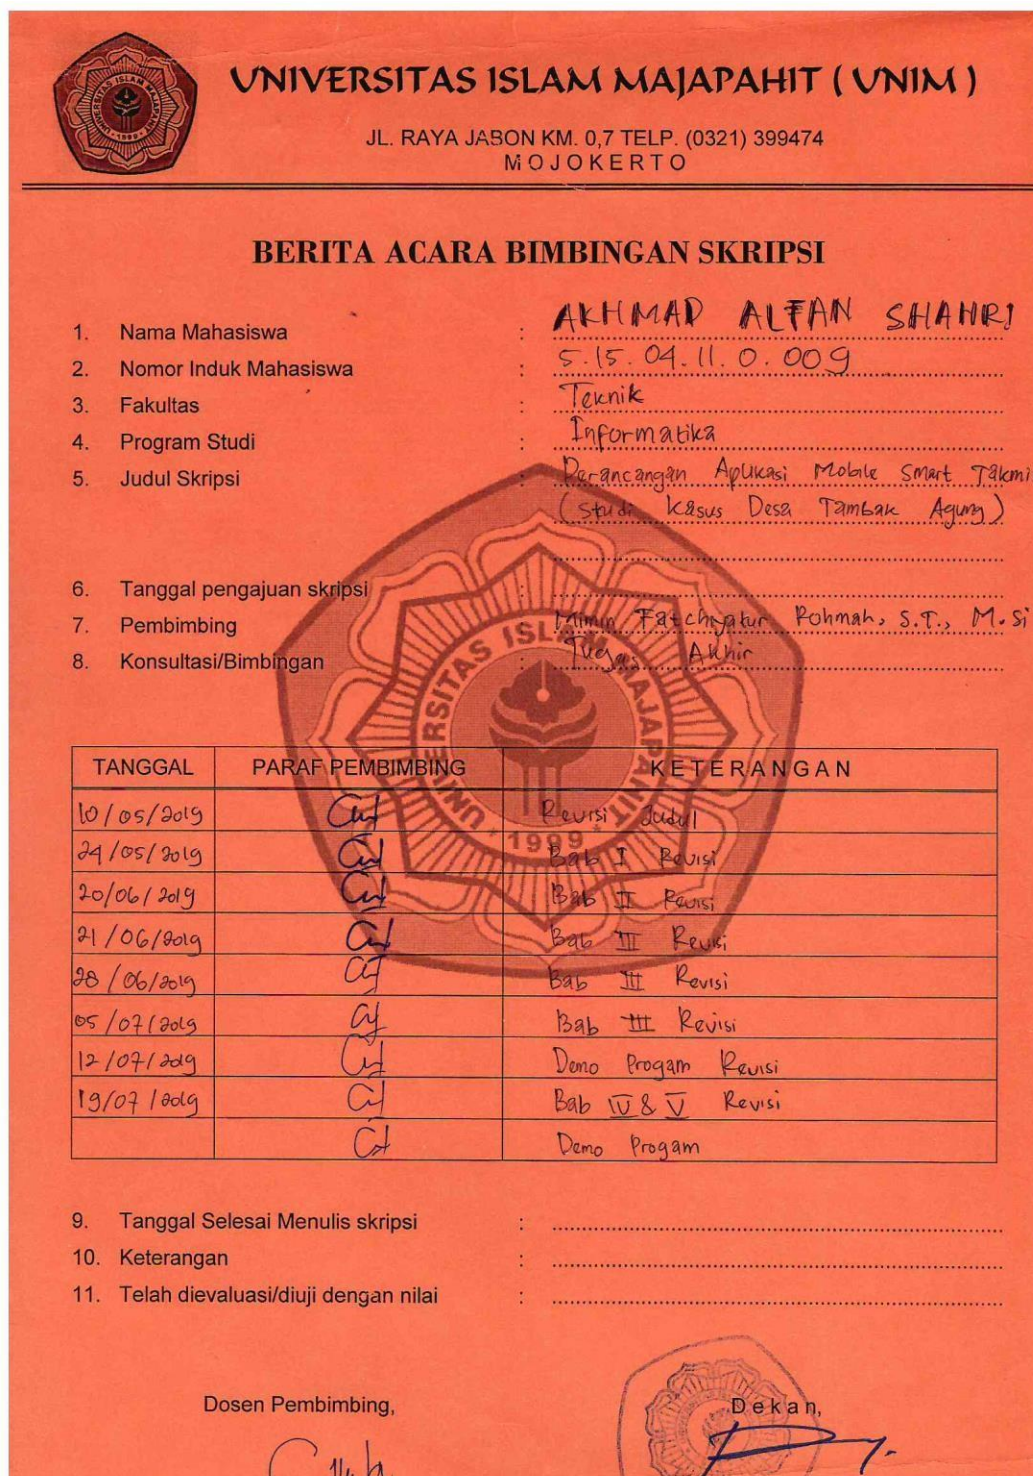 UNIVERSITAS ISLAM MAJAPAHIT ( UNIM )
JL. RAYA JABON KM. 0,7 TELP. (0321) 399474
MOJOKERTO
BERITA ACARA BIMBINGAN SKRIPSI
1. Nama Mahasiswa : AKHMAD ALFAN SHAHRI
2. Nomor Induk Mahasiswa : 5.15.04.11.0.009
3. Fakultas : Teknik
4. Program Studi : Informatika
5. Judul Skripsi : Perancangan Aplikasi Mobile Smart Takmi
(Studi Kasus Desa Tambak Agung)
6. Tanggal pengajuan skripsi :
7. Pembimbing : Mimin Fatchiyatur Rohmah, S.T., M.Si
8. Konsultasi/Bimbingan : Tugas Akhir
UNIVERSITAS ISLAM MAJAPAHIT
* 1999 *
TANGGAL PARAF PEMBIMBING KETERANGAN
10/05/2019 Revisi Judul
24/05/2019 Bab I Revisi
20/06/2019 Bab II Revisi
21/06/2019 Bab III Revisi
28/06/2019 Bab III Revisi
05/07/2019 Bab III Revisi
12/07/2019 Demo Progam Revisi
19/07/2019 Bab IV & V Revisi
Demo Progam
9. Tanggal Selesai Menulis skripsi :
10. Keterangan :
11. Telah dievaluasi/diuji dengan nilai :
Dosen Pembimbing, Dekan,